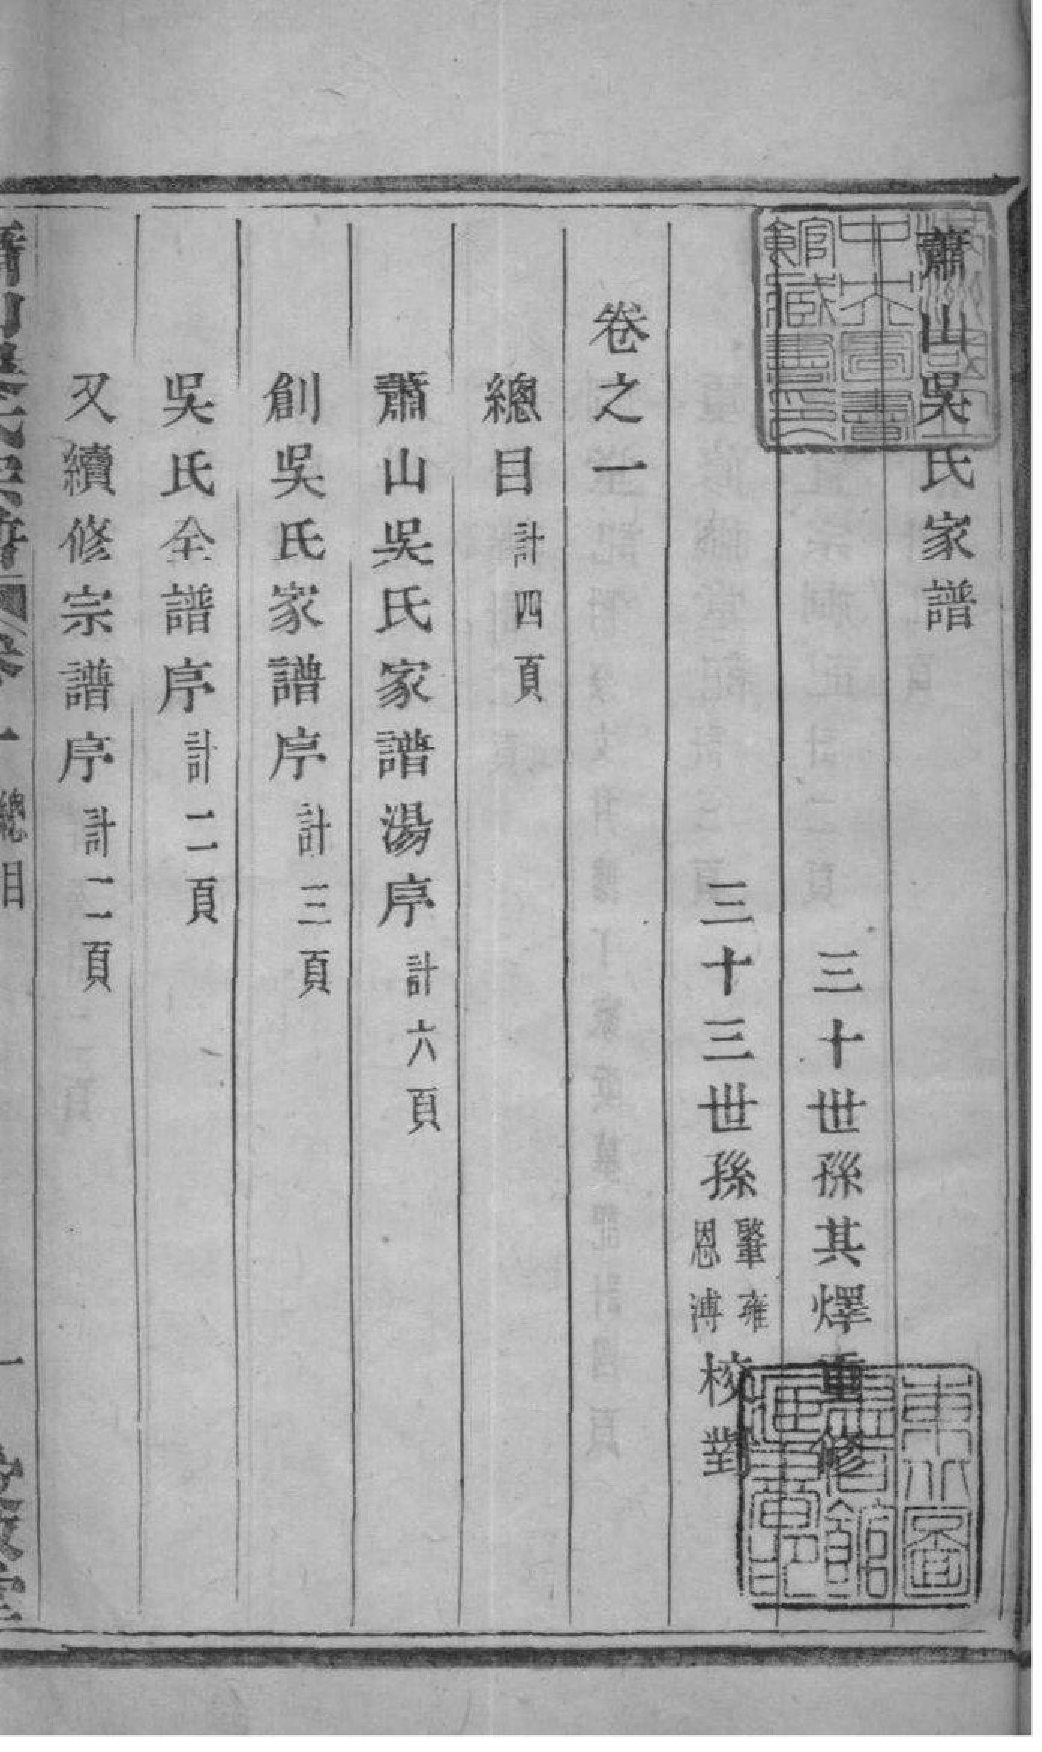 蕭山吳氏家譜
三十世孫其燡重修
三十三世孫肇雍恩溥校對
卷之一
總目計四頁
蕭山吳氏家譜湯序計六頁
創吳氏家譜序計三頁
吳氏全譜序計二頁
又續修宗譜序計二頁
蕭山吳氏宗譜 卷一 總目 一